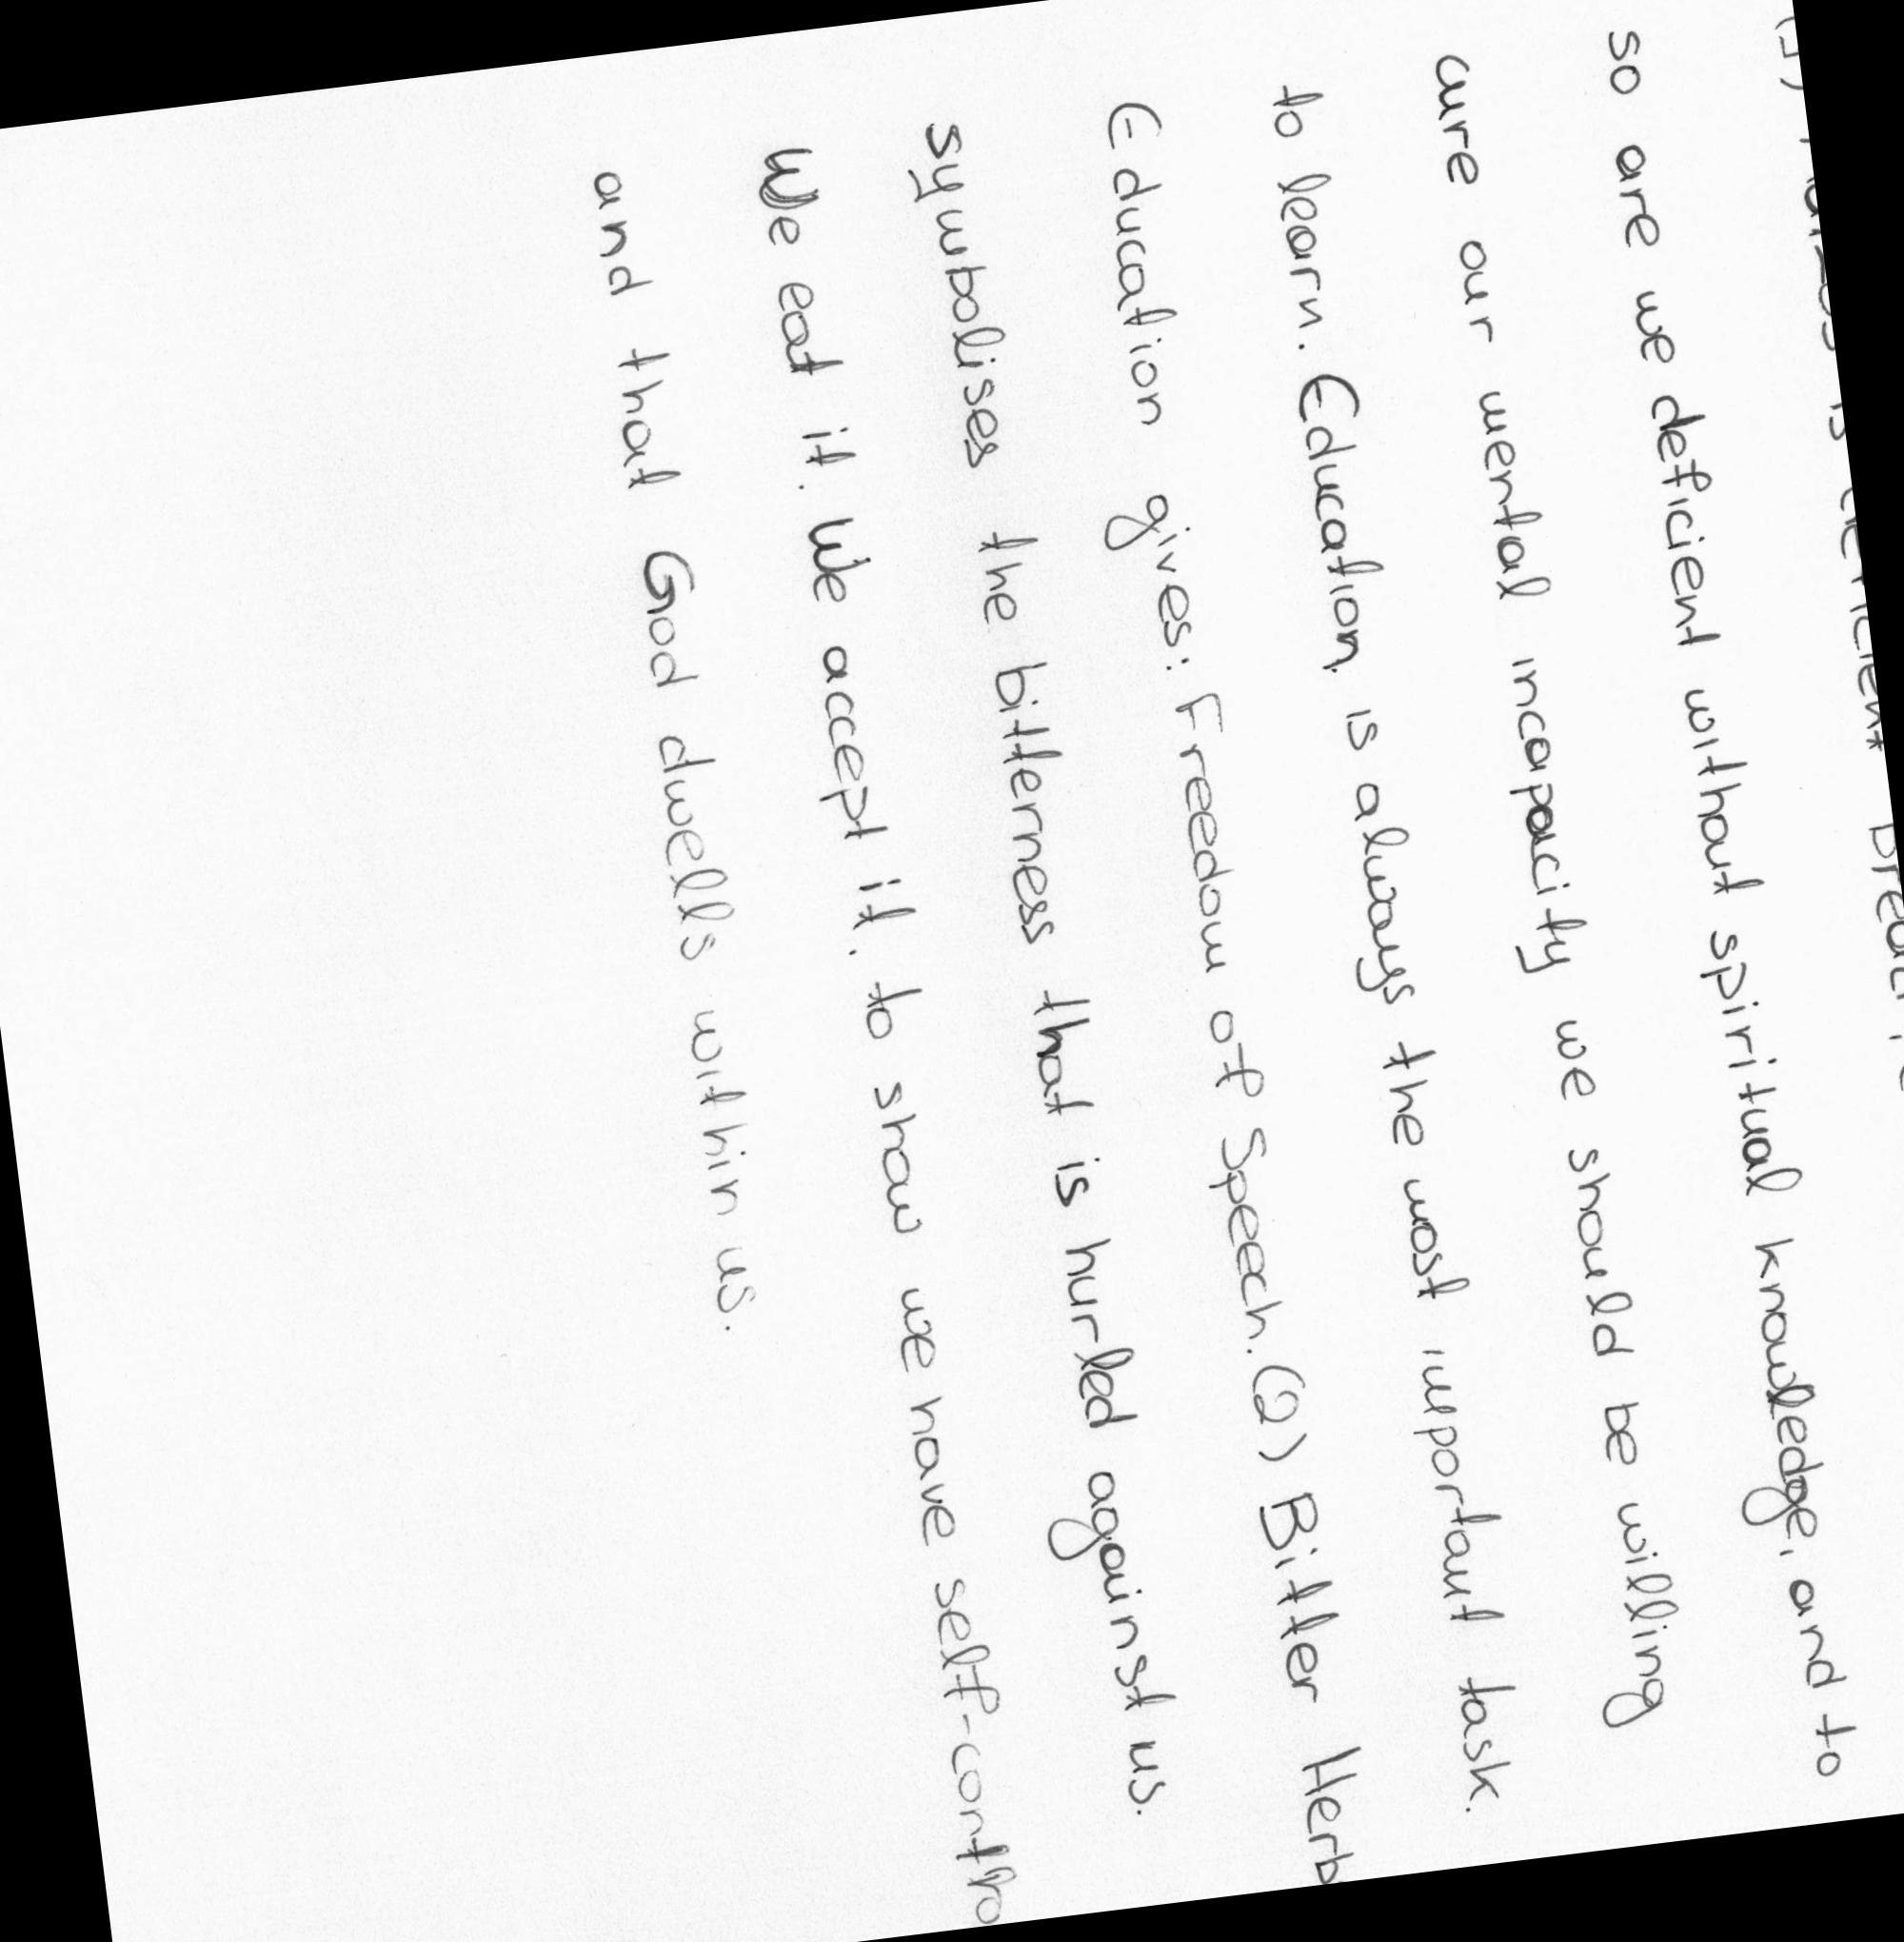 so are we deficient without spiritual knowledge, and to
cure our mental incapacity we should be willing
to learn. Education is always the most important task.
Education gives: Freedom of Speech. (2) Bitter Herb
symbolises the bitterness that is hurled against us.
We eat it. We accept it, to show we have self-contro
and that God dwells within us.